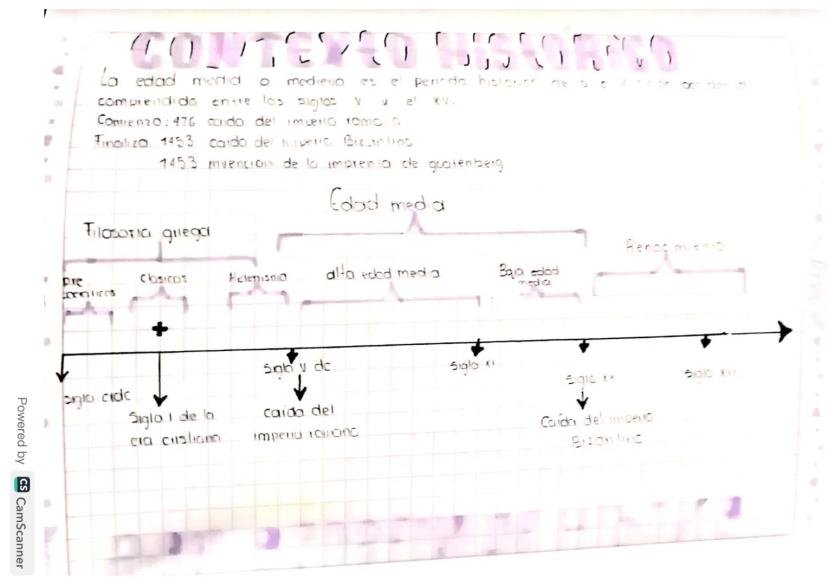 CONTEXTO HISTORICO
La edad media o medievo es el periodo historico de
comprendido entre los siglos V y el XV.
Comienzo: 476 caida del imperio romano
Finaliza 1453 caida del imperio Bizantino
1453 invencion de la imprenta de
Edad media
Filosofia griega
Renacimiento
pre
Clasicos
Helenismo
alta edad media
Baja edad
media
+
Siglo V dc
Siglo XI
Siglo XV
Siglo
Siglo
Siglo I de la
era cristiana
caida del
imperio romano
Caida del imperio
Bizantino
Powered by CS CamScanner